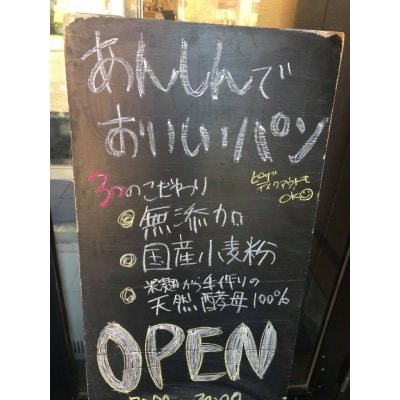 あんしんで
おいしいパン
3つのこだわり
ピザ
テイクアウトも
OK
無添加
国産小麦粉
米麹から手作りの
天然酵母100%
OPEN